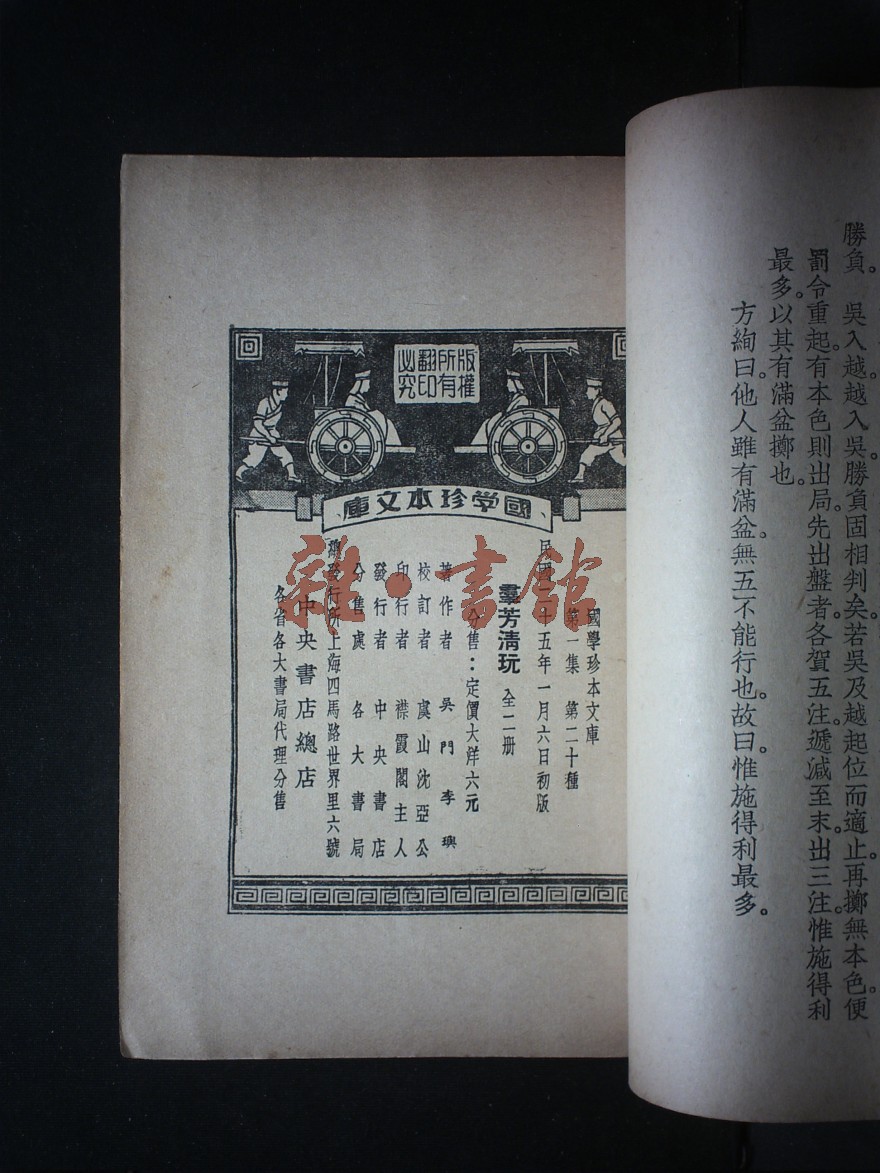 勝負。　吳入越。越入吳。勝負固相判矣。若吳及越起位而適止。再擲無本色。便
罰令重起。有本色則出局。先出盤者。各賀五注。遞減至末。出三注。惟施得利
最多。以其有滿盆擲也。
方絢曰。他人雖有滿盆。無五不能行也。故曰。惟施得利最多。
版權
所有
翻印
必究
國學珍本文庫
國學珍本文庫
第一集　第二十種
民國二十五年一月六日初版
羣芳清玩　全二册
分售：定價大洋六元
著作者　吳門李璵
校訂者　虞山沈亞公
印行者　襟霞閣主人
發行者　中央書店
分售處　各大書局
總發行所上海四馬路世界里六號
中央書店總店
各省各大書局代理分售
雜·書館